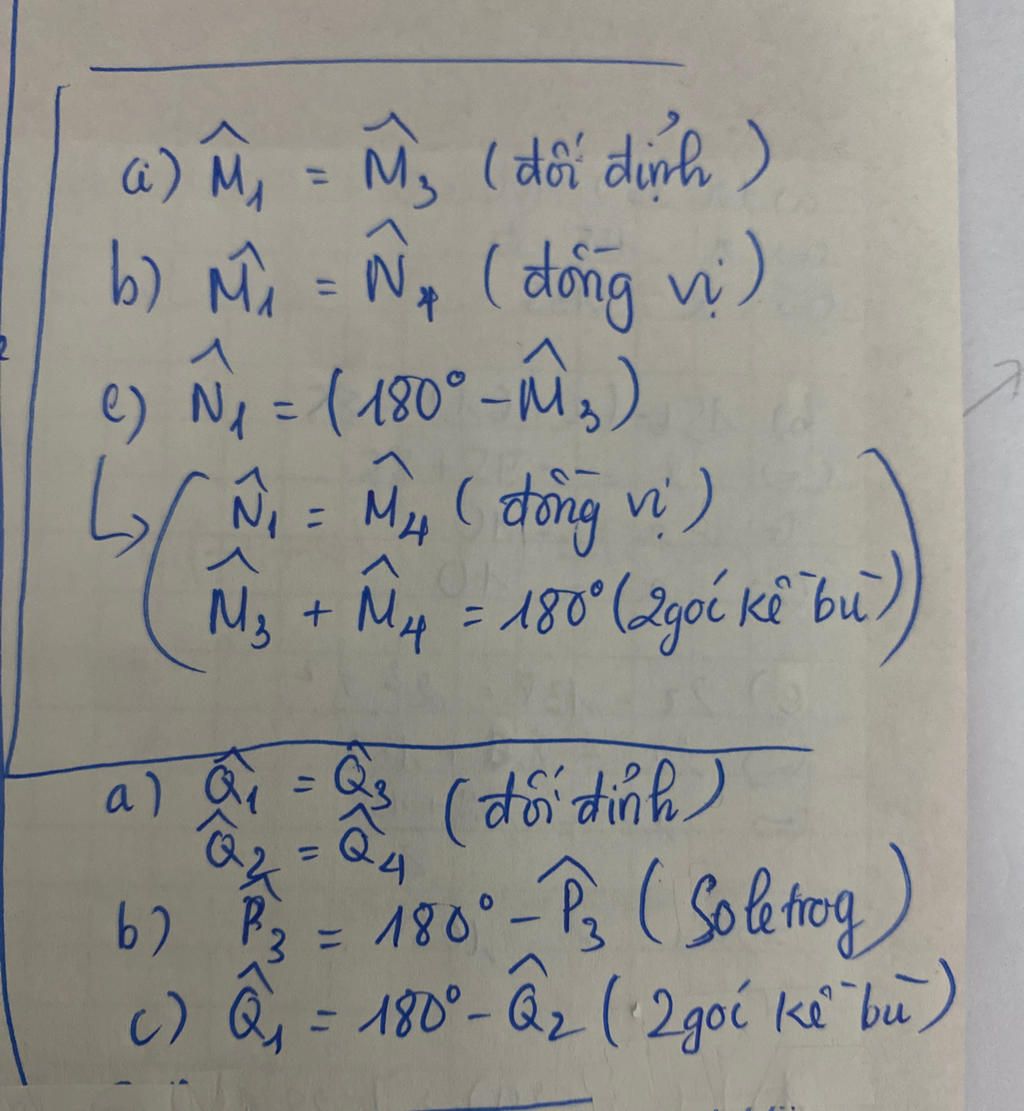 a) M̂₁ = M̂₃ (đối đỉnh)
b) M̂₁ = N̂₄ (đồng vị)
c) N̂₁ = (180° - M̂₃)
↳ ( N̂₁ = M̂₄ (đồng vị)
M̂₃ + M̂₄ = 180° (2 góc kề bù) )
a) Q̂₁ = Q̂₃ (đối đỉnh)
Q̂₂ = Q̂₄
b) P̂₃ = 180° - P̂₃ (Sole trog)
c) Q̂₁ = 180° - Q̂₂ (2 góc kề bù)